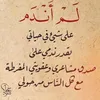 لم أندم
على شيئ في حياتي
بقدر ندمي على
صدق مشاعري وعفويتي المفرطة
مع كل الناس من حولي